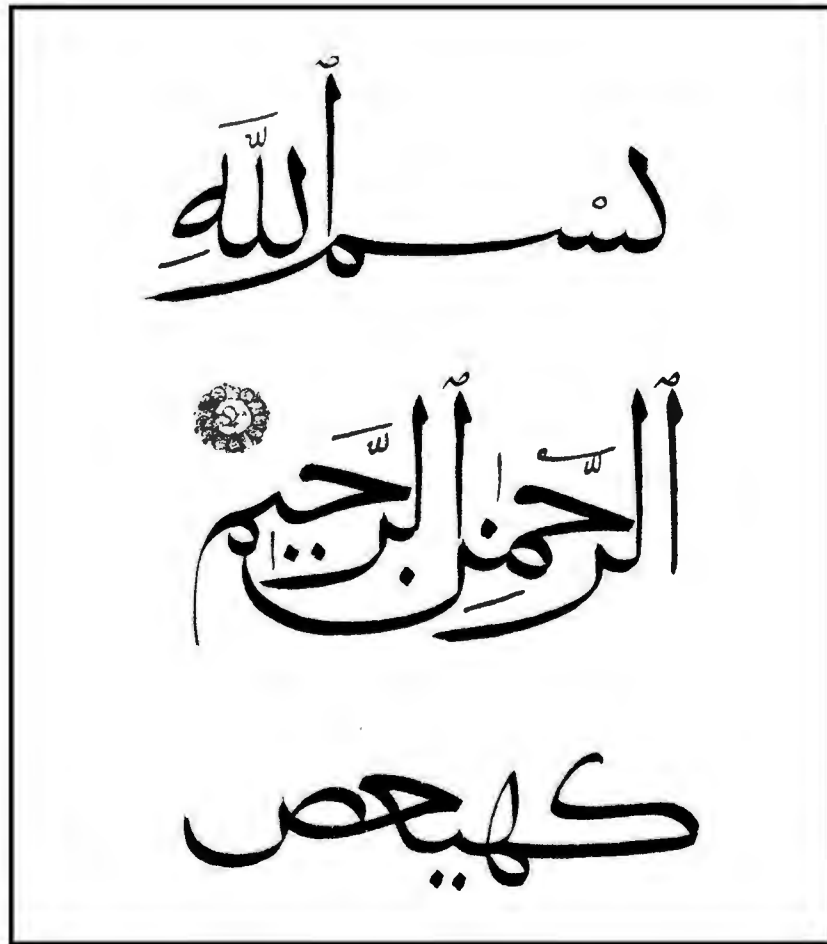 بسْمِ ٱللَّهِ
ٱلرَّحْمَٰنِ ٱلرَّحِيمِ
كهيعص